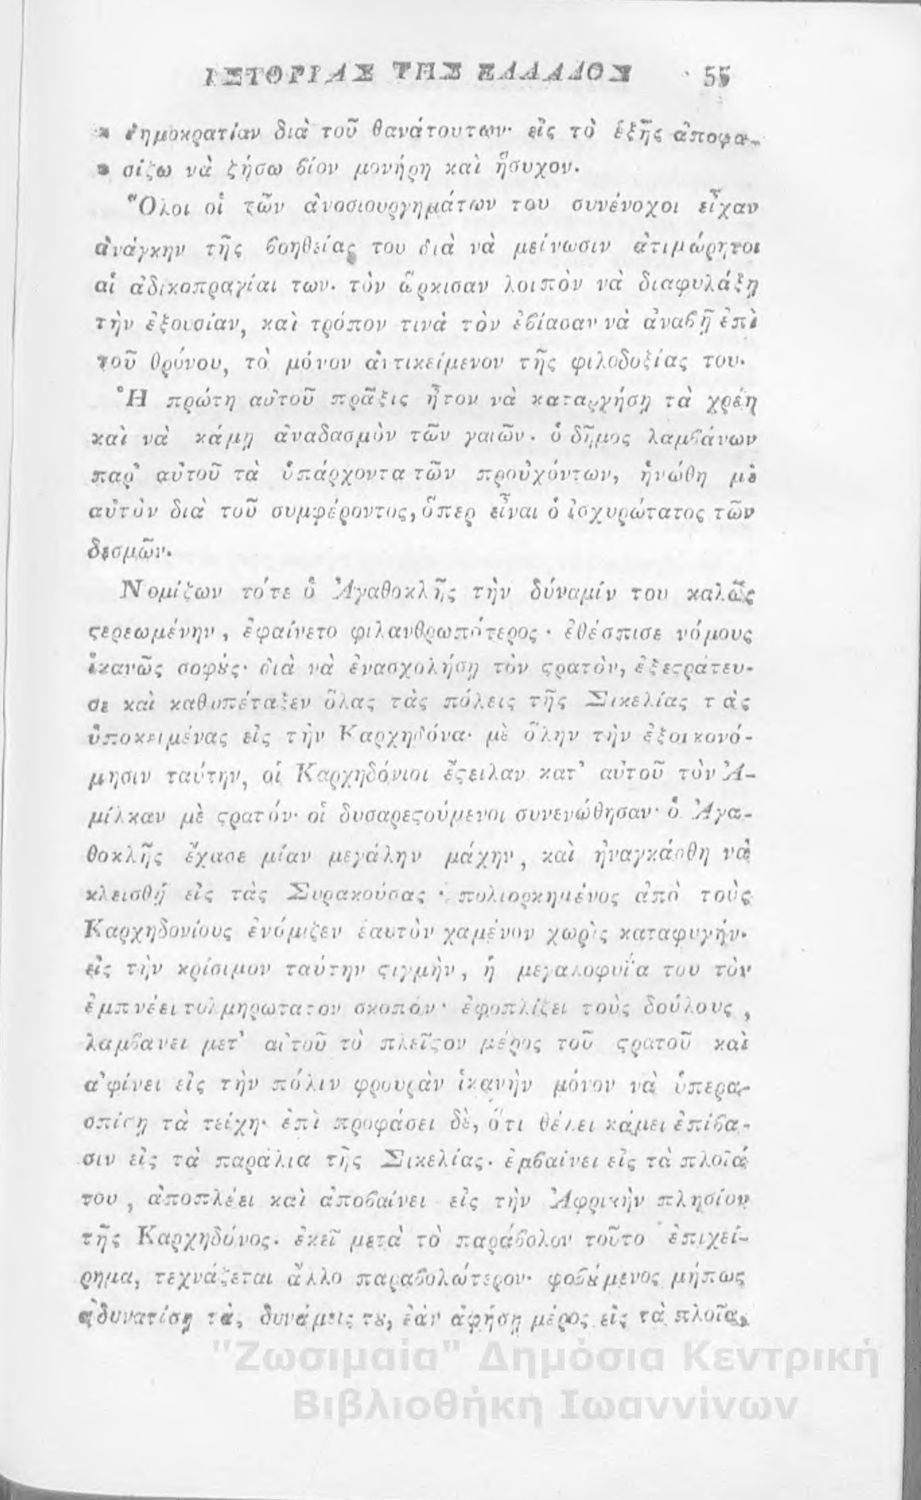 ΙΣΤΟΡΙΑΣ ΤΗΣ ΕΛΛΑΔΟΣ 55
» δημοκρατίαν διὰ τοῦ θανάτουτων· εἰς τὸ ἑξῆς ἀποφα-
» σίζω νὰ ζήσω βίον μονήρη καὶ ἥσυχον.
Ὅλοι οἱ τῶν ἀνοσιουργημάτων του συνένοχοι εἶχαν
ἀνάγκην τῆς βοηθείας του διὰ νὰ μείνωσιν ἀτιμώρητοι
αἱ ἀδικοπραγίαι των· τὸν ὥρκισαν λοιπὸν νὰ διαφυλάξῃ
τὴν ἐξουσίαν, καὶ τρόπον τινὰ τὸν ἐβίασαν νὰ ἀναβῇ ἐπὶ
τοῦ θρόνου, τὸ μόνον ἀντικείμενον τῆς φιλοδοξίας του.
Ἡ πρώτη αὐτοῦ πρᾶξις ἦτον νὰ καταργήσῃ τὰ χρέη
καὶ νὰ κάμῃ ἀναδασμὸν τῶν γαιῶν· ὁ δῆμος λαμβάνων
παρ' αὐτοῦ τὰ ὑπάρχοντα τῶν προὐχόντων, ἡνώθη μὲ
αὐτὸν διὰ τοῦ συμφέροντος, ὅπερ εἶναι ὁ ἰσχυρώτατος τῶν
δεσμῶν.
Νομίζων τότε ὁ Ἀγαθοκλῆς τὴν δύναμίν του καλῶς
ϛερεωμένην, ἐφαίνετο φιλανθρωπότερος· ἐθέσπισε νόμους
ἱκανῶς σοφȣς· διὰ νὰ ἐνασχολήσῃ τὸν ϛρατὸν, ἐξεϛράτευ-
σε καὶ καθυπέταξεν ὅλας τὰς πόλεις τῆς Σικελίας τὰς
ὑποκειμένας εἰς τὴν Καρχηδόνα· μὲ ὅλην τὴν ἐξοικονό-
μησιν ταύτην, οἱ Καρχηδόνιοι ἔϛειλαν κατ' αὐτοῦ τὸν Ἀ-
μίλκαν μὲ ϛρατόν· οἱ δυσαρεϛούμενοι συνενώθησαν· ὁ Ἀγα-
θοκλῆς ἔχασε μίαν μεγάλην μάχην, καὶ ἠναγκάσθη νὰ
κλεισθῇ εἰς τὰς Συρακούσας· πολιορκημένος ἀπὸ τοὺς
Καρχηδονίους ἐνόμιζεν ἑαυτὸν χαμένον χωρὶς καταφυγήν·
εἰς τὴν κρίσιμον ταύτην ϛιγμὴν, ἡ μεγαλοφυΐα του τὸν
ἐμπνέει τολμηρώτατον σκοπόν· ἐφοπλίζει τοὺς δούλους,
λαμβάνει μετ' αὐτοῦ τὸ πλεῖϛον μέρος τοῦ ϛρατοῦ καὶ
ἀφίνει εἰς τὴν πόλιν φρουρὰν ἱκανὴν μόνον νὰ ὑπερα-
σπίσῃ τὰ τείχη· ἐπὶ προφάσει δὲ, ὅτι θέλει κάμει ἐπίβα-
σιν εἰς τὰ παράλια τῆς Σικελίας· ἐμβαίνει εἰς τὰ πλοῖά
του, ἀποπλέει καὶ ἀποβαίνει εἰς τὴν Ἀφρικὴν πλησίον
τῆς Καρχηδόνος· ἐκεῖ μετὰ τὸ παράβολον τοῦτο ἐπιχεί-
ρημα, τεχνάζεται ἄλλο παραβολώτερον· φοβȣμενος μήπως
ἀδυνατίσῃ τὰς δυνάμεις τȣ, ἐὰν ἀφήσῃ μέρος εἰς τὰ πλοῖα,
"Ζωσιμαία" Δημόσια Κεντρική
Βιβλιοθήκη Ιωαννίνων